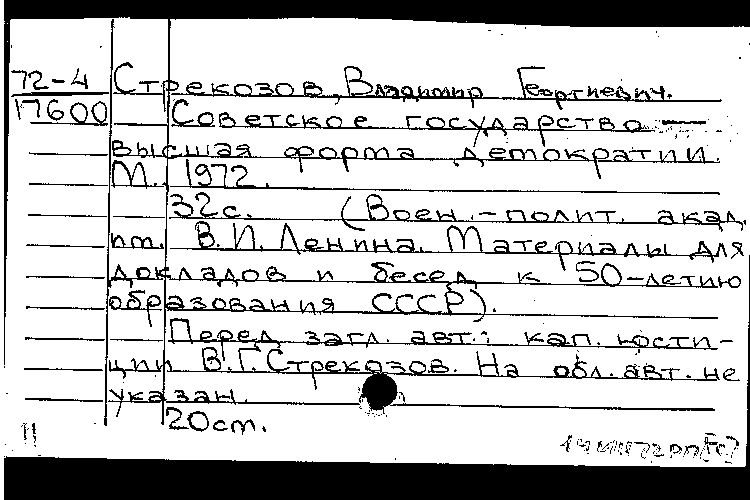 72-4 Стрекозов, Владимир Георгиевич.
17600 Советское государство —
высшая форма демократии.
М., 1972.
32с. (Воен.-полит. акад.
им. В.И. Ленина. Материалы для
докладов и бесед к 50-летию
образования СССР).
Перед загл. авт.: кап. юсти-
ции В.Г. Стрекозов. На обл. авт. не
указан.
20см.
11